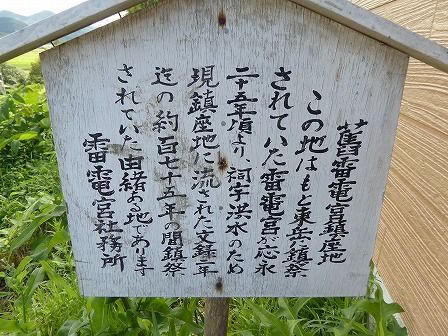 舊雷電宮鎮座地
この地はもと東兵に鎮祭
されていた雷電宮が応永
二十五年頃より、祠宇洪水のため
現鎮座地に流された文録年
迄の約百七十五年の間鎮祭
されていた由緒の地であります
雷電宮社務所